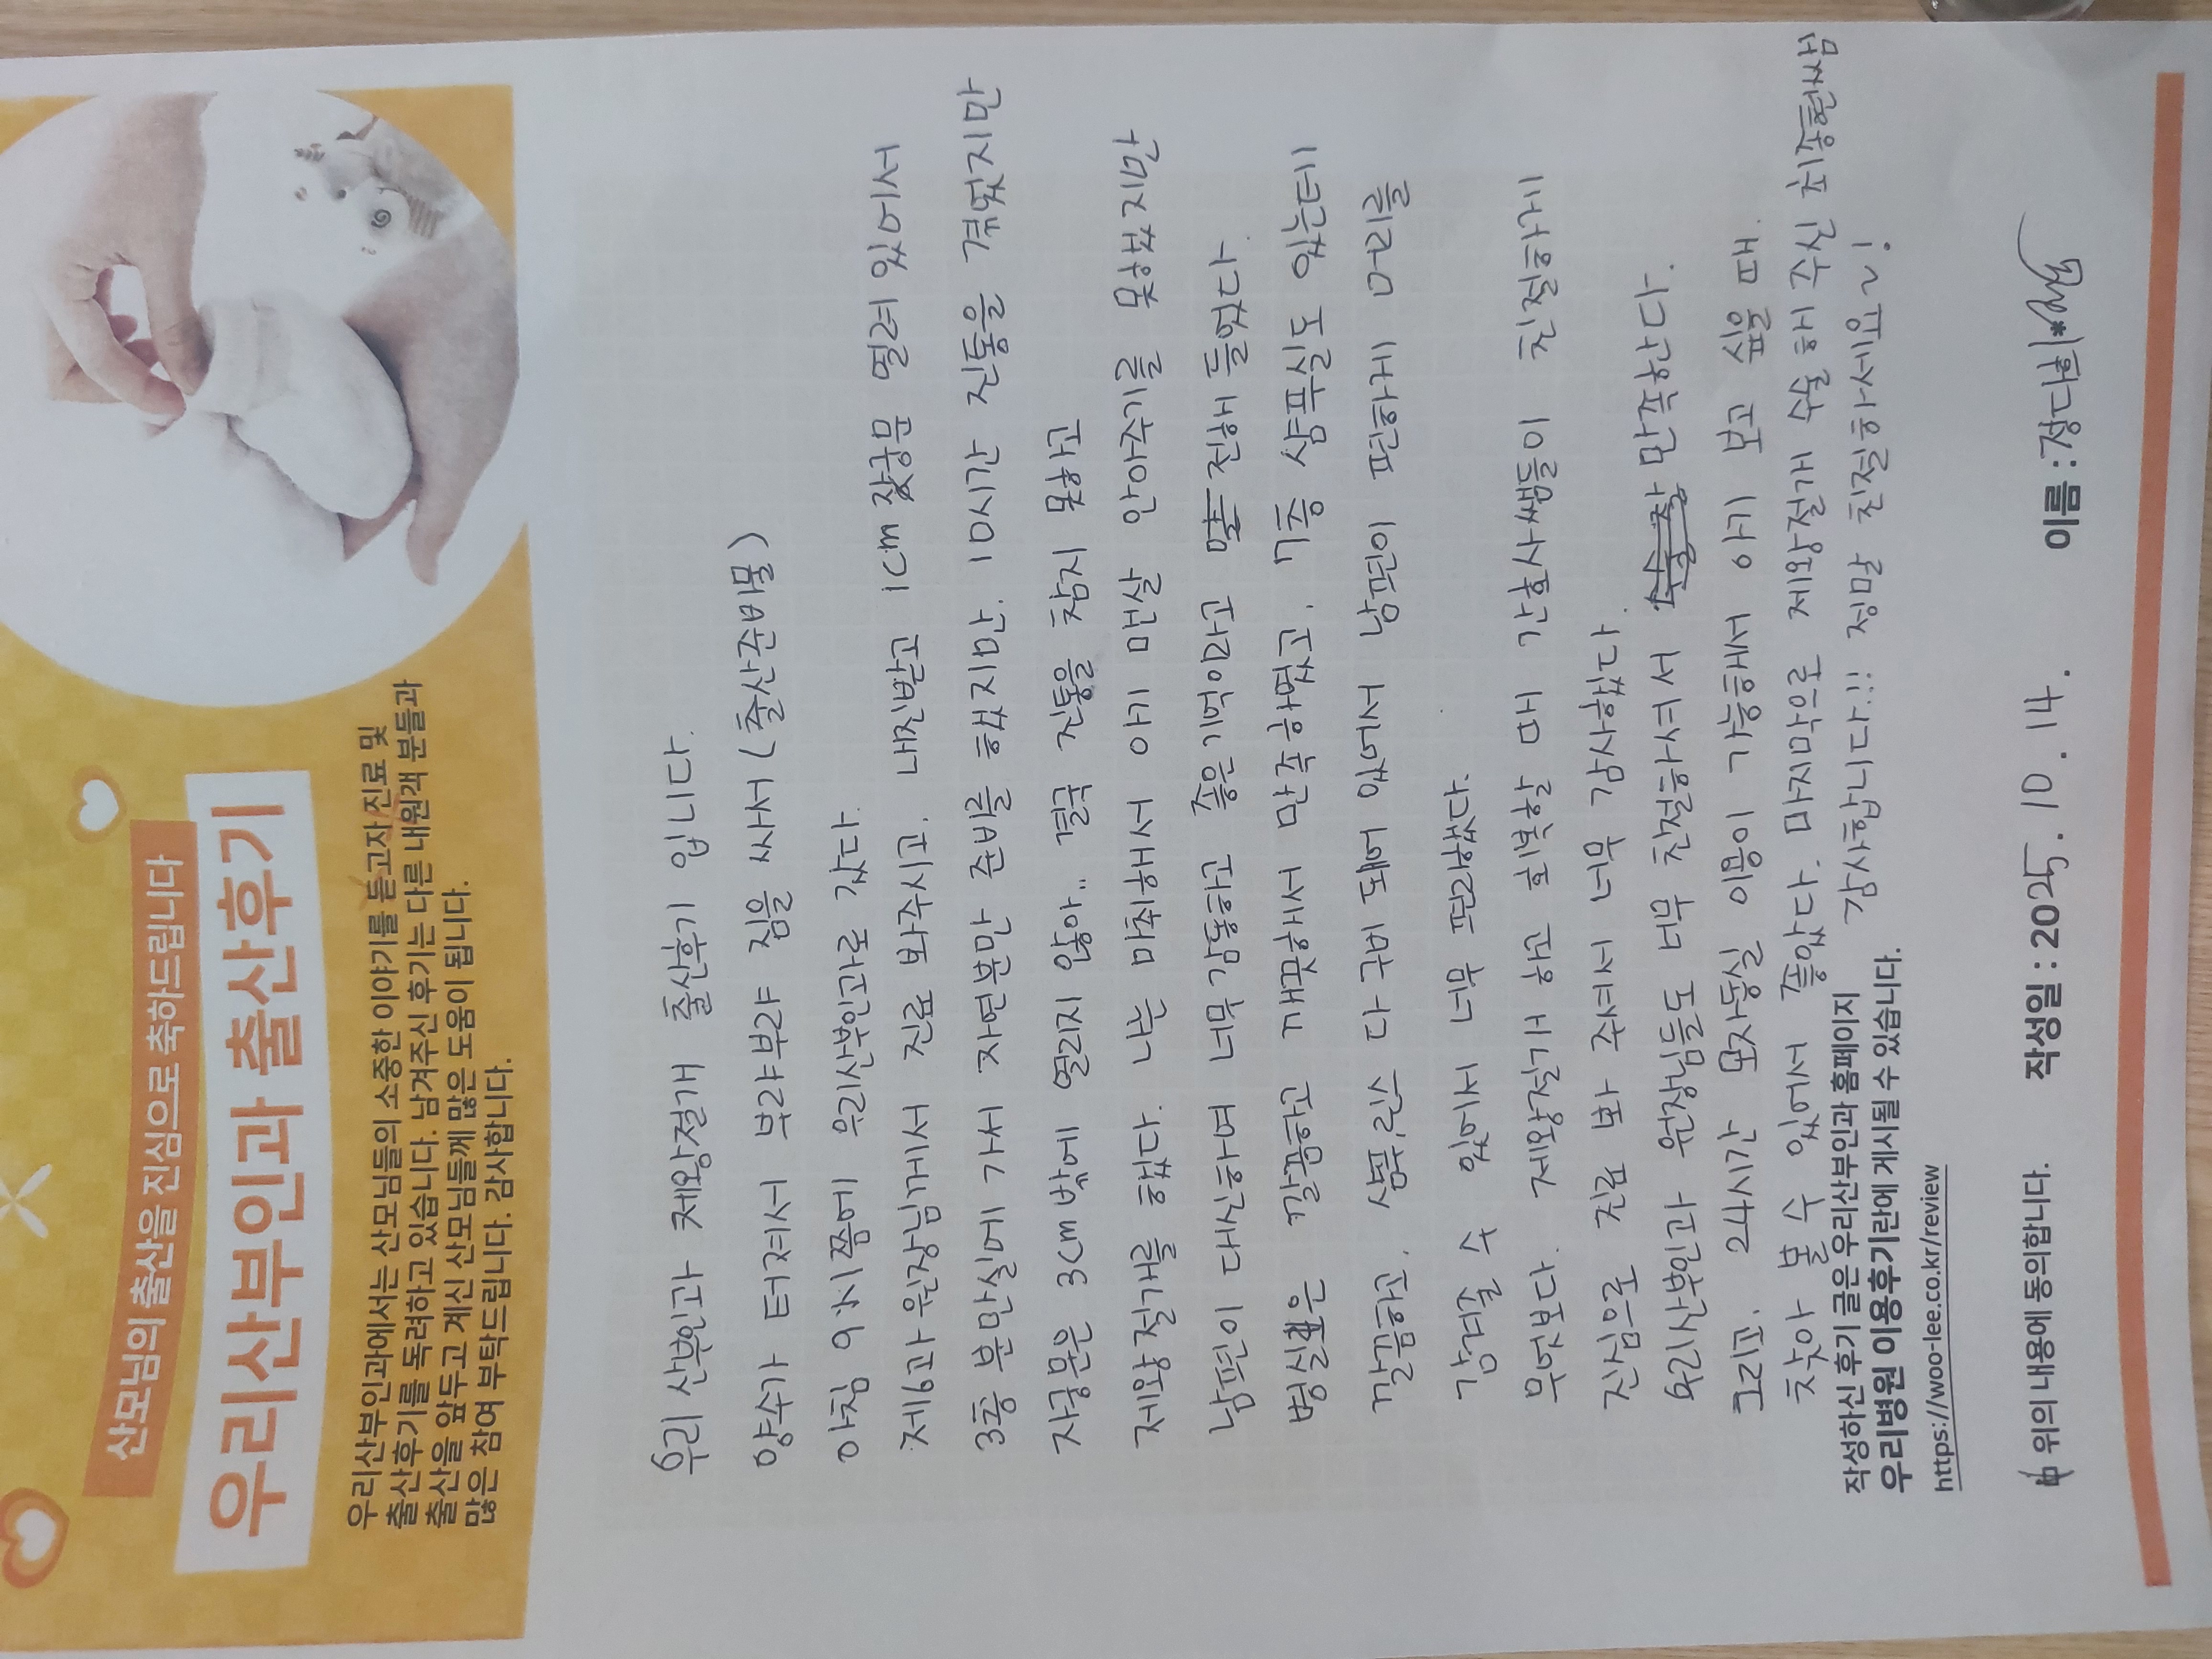 산모님의 출산을 진심으로 축하드립니다
우리산부인과 출산후기
우리산부인과에서는 산모님들의 소중한 이야기를 듣고자 진료 및
출산후기를 독려하고 있습니다. 남겨주신 후기는 다른 내원객 분들과
출산을 앞두고 계신 산모님들께 많은 도움이 됩니다.
많은 참여 부탁드립니다. 감사합니다.
우리 산부인과 제왕절개 출산후기 입니다.
양수가 터져서 부랴부랴 짐을 싸서 (출산준비물)
아침 9시쯤에 우리산부인과로 갔다.
제6과 원장님께서 진료 봐주시고. 내진받고 1cm 자궁문 열려있어서
3층 분만실에 가서 자연분만 준비를 했지만. 10시간 진통을 겪었지만
자궁문은 3cm밖에 열리지 않아.. 결국 진통을 참지 못하고
제왕절개를 했다. 나는 마취해서 아기 맨살 안아주기를 못했지만
남편이 대신하여 너무감동하고 좋은기억이라고 말 전해 들었다.
병실은 깔끔하고 깨끗해서 만족하였고. 7층 샴푸실도 있는데
깔끔하고. 샴푸,린스 다 구비 돼어 있어서 남편이 편하게 머리를
감겨줄 수 있어서 너무 편리했다.
무엇보다. 제왕절개 하고 회복할 때 간호사쌤들이 친절하게
진심으로 진료 봐 주셔서 너무 감사했다.
우리산부인과 원장님들도 너무 친절하셔서 만족한다.
그리고. 24시간 모자동실 이용이 가능해서 아기 보고 싶을 때.
찾아 볼 수 있어서 좋았다. 마지막으로 제왕절개 수술 해 주신 최종현쌤
감사합니다.!! 정말 친절하세요~!
작성하신 후기 글은 우리산부인과 홈페이지
우리병원 이용후기란에 게시될 수 있습니다.
https://woo-lee.co.kr/review
위의 내용에 동의합니다. 작성일 : 2025. 10. 14. 이름 : 정다희*